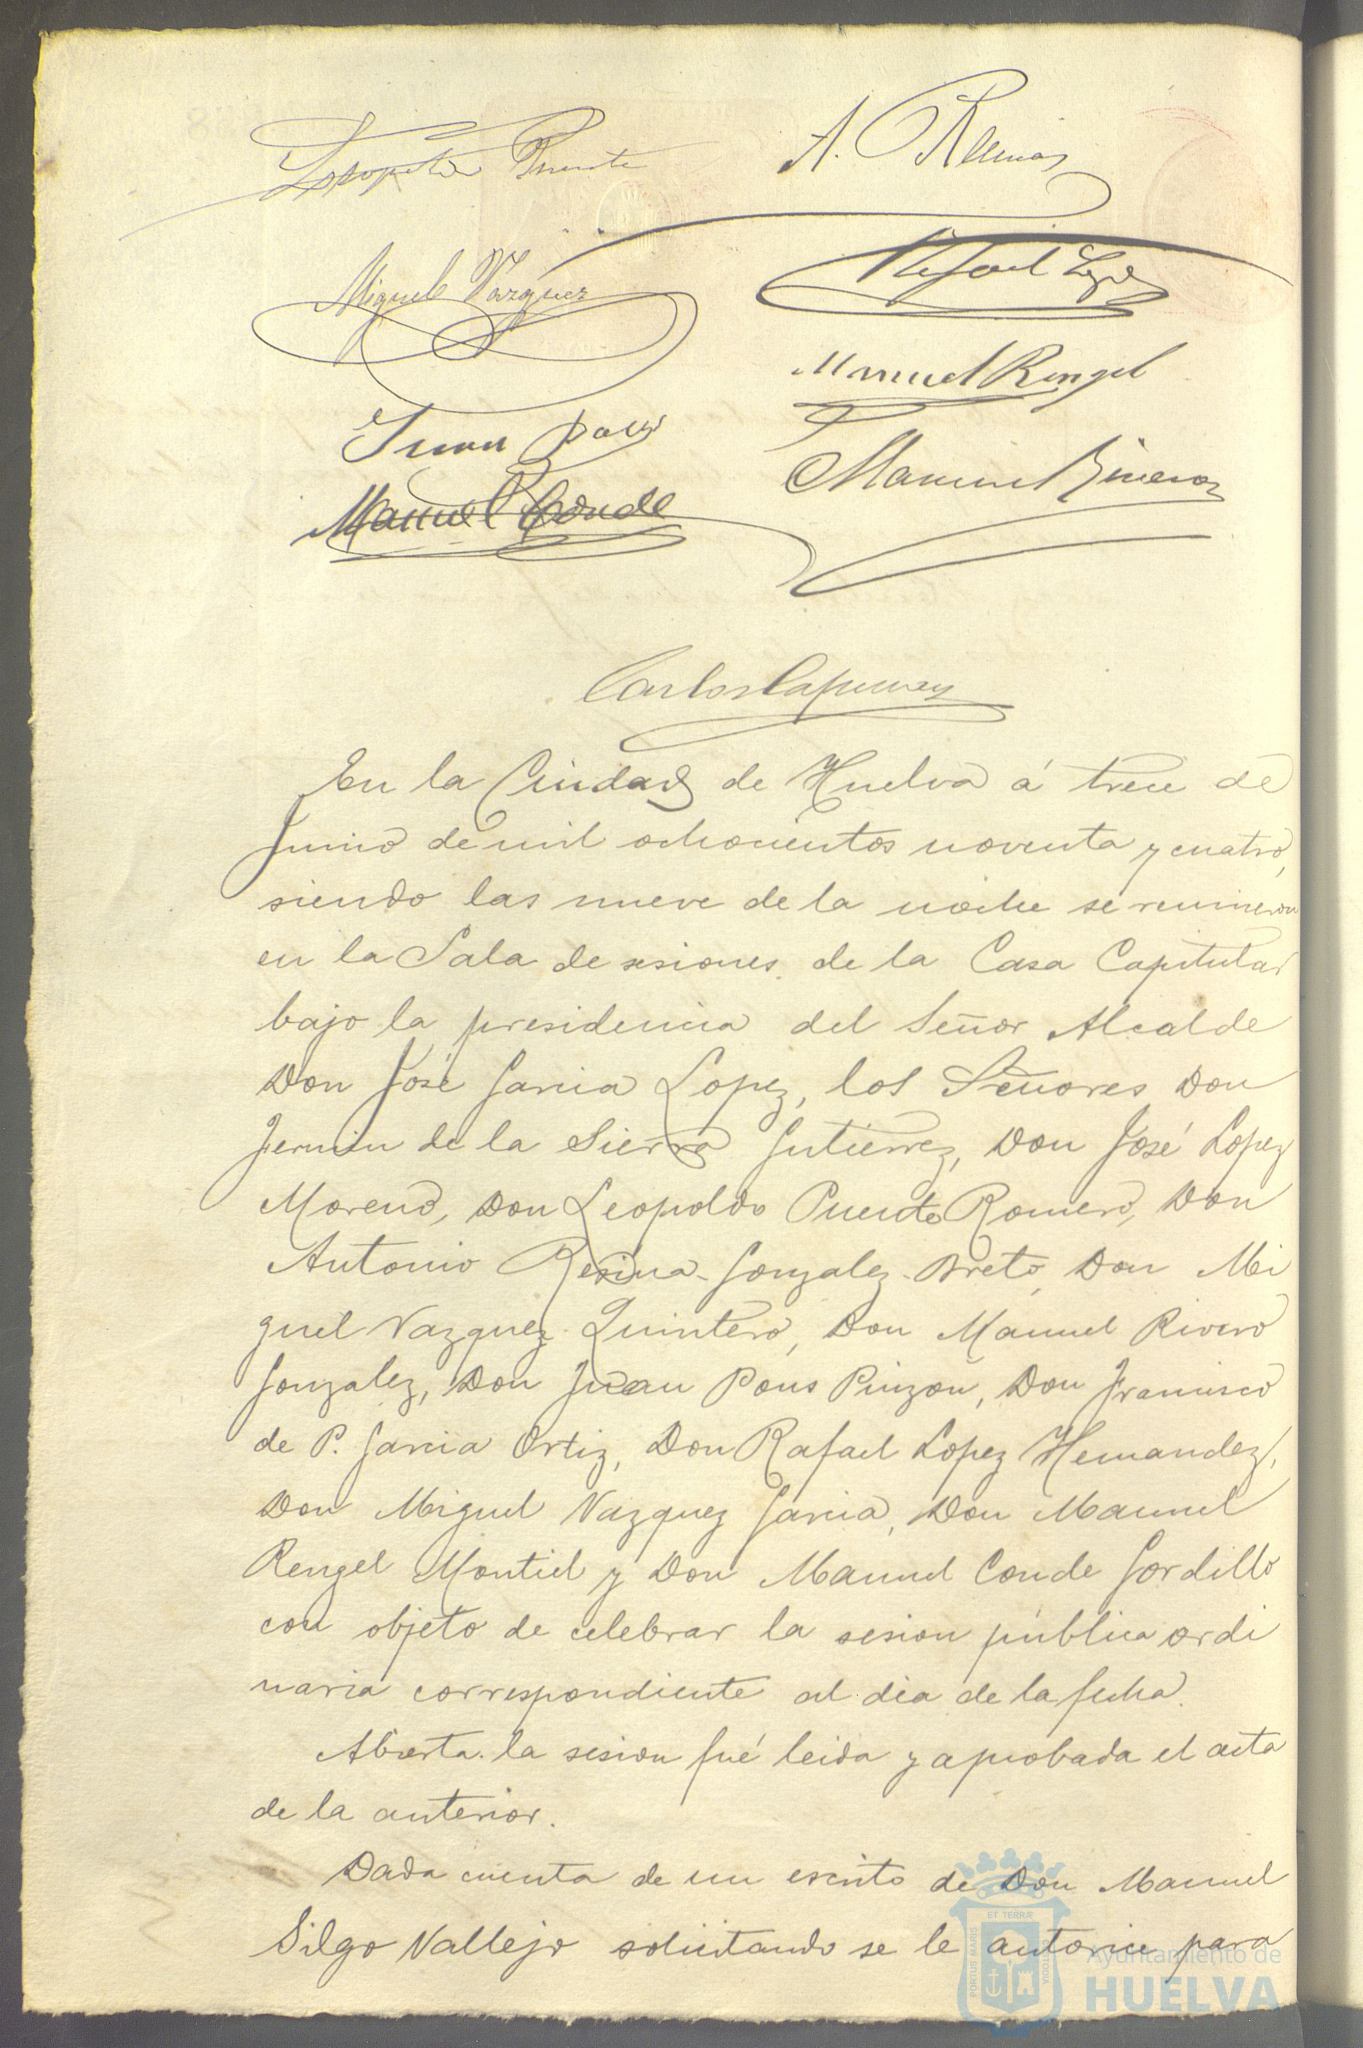 Leopoldo Puente
A. Resina
Miguel Vazquez
Rafael Lopez
Manuel Rengel
Juan Pons
Manuel Rivero
Manuel Conde
Carlos
En la Ciudad de Huelva á trece de
Junio de mil ochocientos noventa y cuatro,
siendo las nueve de la noche se reunieron
en la Sala de sesiones de la Casa Capitular
bajo la presidencia del Señor Alcalde
Don José Garcia Lopez, los Señores Don
Fermin de la Sierra Gutierrez, Don José Lopez
Moreno, Don Leopoldo Puente Romero, Don
Antonio Resina Gonzalez Breto, Don Mi
guel Vazquez Quintero, Don Manuel Rivero
Gonzalez, Don Juan Pons Pinzon, Don Francisco
de P. Garcia Ortiz, Don Rafael Lopez Hernandez,
Don Miguel Vazquez Garcia, Don Manuel
Rengel Montiel y Don Manuel Conde Gordillo
con objeto de celebrar la sesion pública ordi
naria correspondiente al dia de la fecha.
Abierta la sesion fué leida y aprobada el acta
de la anterior.
Dada cuenta de un escrito de Don Manuel
Silgo Vallejo solicitando se le autorice para
PORTUS MARIS ET TERRÆ CUSTODIA
Ayuntamiento de
HUELVA